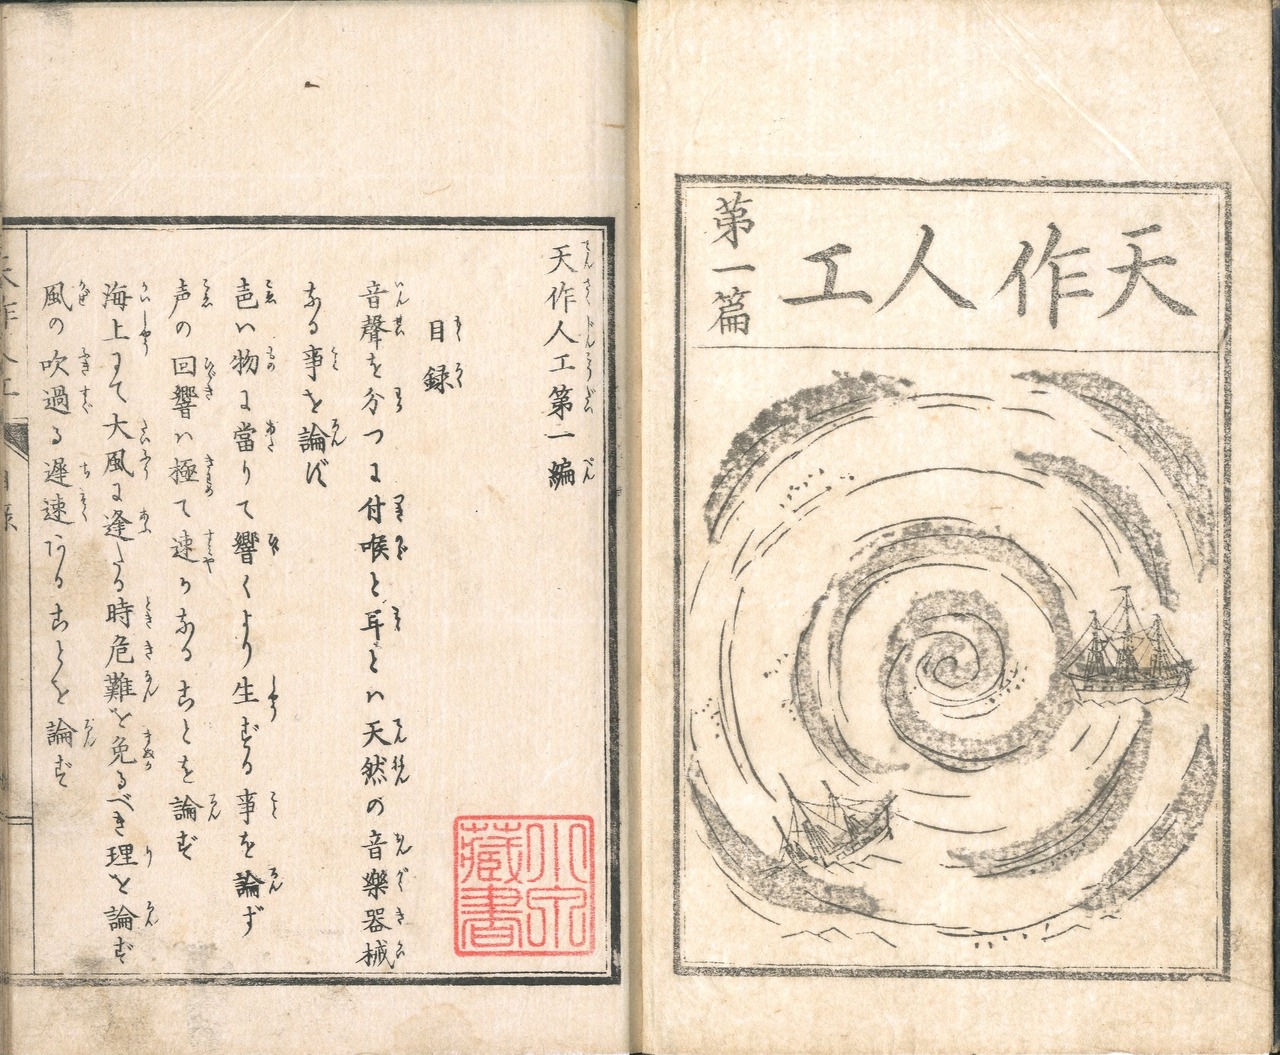 天作人工
第一篇
天作人工第一編
目録
音聲を分つに付喉と耳とハ天然の音樂器械
なる事を論ず
音ハ物に當りて響くより生ずる事を論ず
声の回響ハ極て速かなることを論ず
海上にて大風に逢たる時危難を免るべき理を論ず
風の吹過る遅速あることを論ず
天作人工
目録
小泉藏書